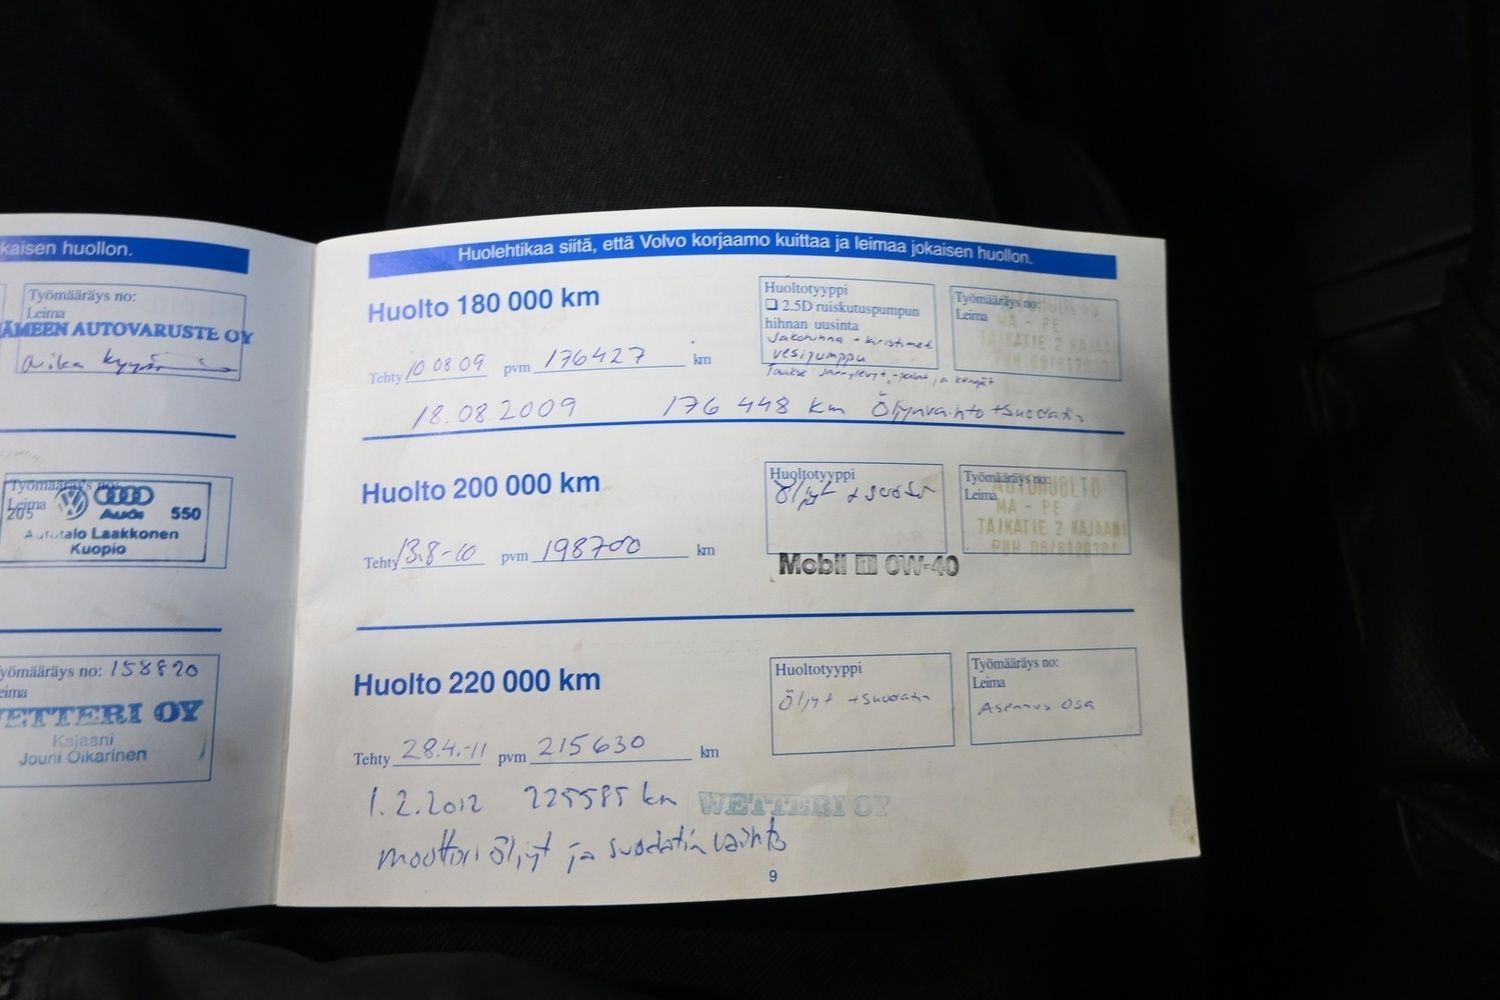 kaisen huollon.
Työmääräys no:
Leima
ÄMEEN AUTOVARUSTE OY
Työmääräys no:
Leima
205 Audi 550
Autotalo Laakkonen
Kuopio
yömääräys no: 158820
eima
WETTERI OY
Kajaani
Jouni Oikarinen
Huolehtikaa siitä, että Volvo korjaamo kuittaa ja leimaa jokaisen huollon.
Huolto 180 000 km
Tehty 10.08.09 pvm 176427 km
Huoltotyyppi
❏ 2.5D ruiskutuspumpun
hihnan uusinta
Jakohihna + kiristimet
vesipumppu
Taakse jarrulevyt, -palat ja kengät
Työmääräys no:
Leima
MA - PE
TAIKATIE 2 KAJAA
PUH 08/6120321
18.08.2009 176 448 km Öljynvaihto + suodatin
Huolto 200 000 km
Tehty 13.8-10 pvm 198700 km
Huoltotyyppi
Öljyt + suodat
Mobil 1 0W-40
Työmääräys no:
Leima
AUTOHUOLTO
MA - PE
TAIKATIE 2 KAJAANI
PUH 08/6120321
Huolto 220 000 km
Tehty 28.4.-11 pvm 215630 km
Huoltotyyppi
Öljyt + suodatin
Työmääräys no:
Leima
Asennus osa
1.2.2012 225585 km WETTERI OY
moottori öljyt ja suodatin vaihto
9